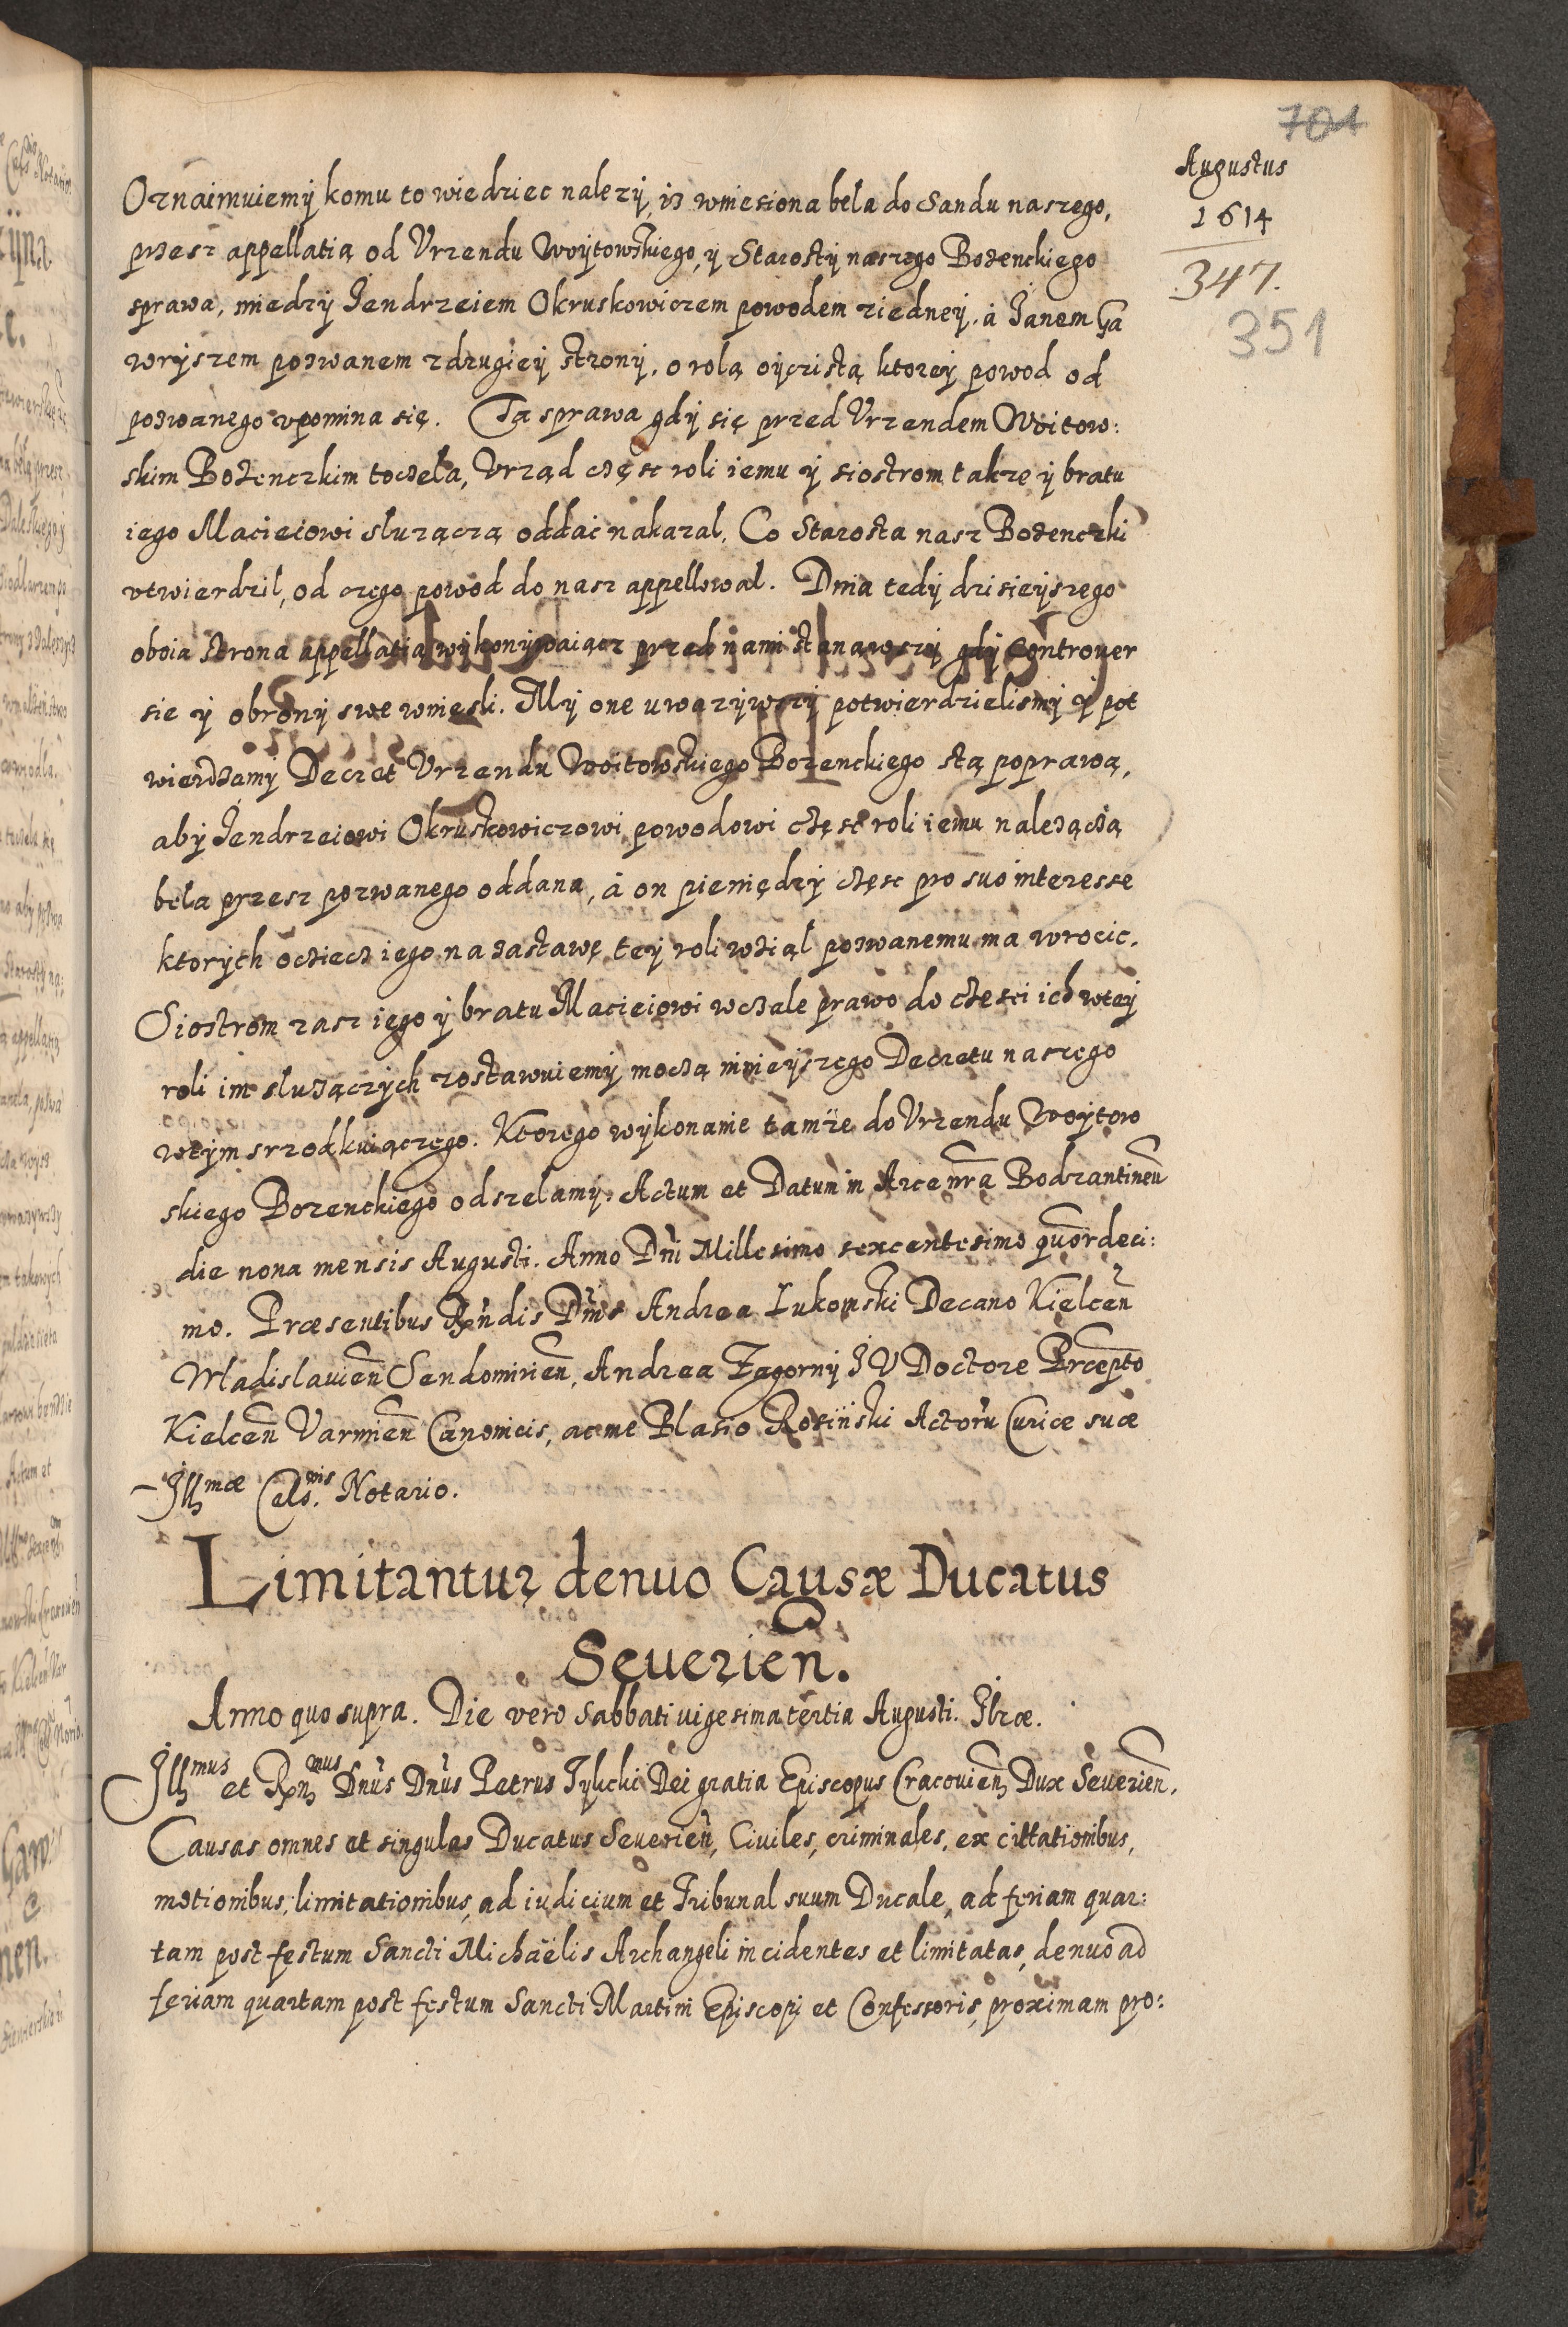 701
Augustus
1614
347.
351
Oznaimuiemÿ komu to wiedziec nalezÿ, iz wniesiona bela do Sandu naszego,
przesz appellatią od Vrzendu Woÿtowskiego, ÿ Starostÿ naszego Bozenckiego
sprawa, miedzÿ Jendrzeiem Okruskowiczem powodem ziedneÿ, à Janem Ga
wrÿszem pozwanem z drugieÿ stronÿ, o rolą oÿczistą ktoreÿ powod od
pozwanego vpomina się. Ta sprawa gdÿ się przed Vrzendem Woitow:
skim Bozenczkim toczela, Vrząd częsc roli iemu ÿ siostrom takze ÿ bratu
iego Macieiowi sluzączą oddać nakazal, Co Starosta nasz Bozenczki
vtwierdzil, od czego powod do nasz appellowal. Dnia tedÿ dzisieÿszego
oboia strona appellatią wÿkonÿwaiącz przed nami stanąwszÿ gdÿ Controuer
sie ÿ obronÿ swe wniesli. Mÿ one uwazÿwszÿ potwierdzielismÿ ÿ pot
wierdzamÿ Decret Vrzendu Woitowskiego Bozenckiego stą poprawą,
abÿ Jendrzeiowi Okruskowiczowi powodowi częsc roli iemu nalezączą
bela przesz pozwanego oddana, à on pieniędzÿ częsc pro suo interesse
ktorÿch oczciecz iego na zastawę teÿ roli wziąl pozwanemu ma wrocic.
Siostrom zasz iego ÿ bratu Macieiowi wczale prawo do częsci ich wteÿ
roli im sluzączÿch zostawuiemÿ moczą ninieÿszego Decretu naszego
wtÿm srzodkuiączego. Ktorego wÿkonanie tamże do Vrzendu Woÿtow
skiego Bozenckiego odszelamÿ. Actum et Datum in Arce nrã Bodzantineñ
die nona mensis Augusti. Anno Dñi Millesimo sexcentesimo quõrdeci:
mo. Præsentibus Rñdis Dñis Andrea Łukomski Decano Kielceñ
Wladislauieñ Sendomirieñ, Andrea Zagornÿ J V Doctore Præpto
Kielceñ Varmieñ Canonicis, ac me Blasio Rosiński Actorũ Curiæ suæ
Illmæ Cels.nis Notario.
Limitantur denuo Causæ Ducatus
Seuerieñ.
Anno quo supra. Die vero Sabbati uigesima tertia Augusti. Ibræ.
Illmus et Rnmus Dñus Dñus Petrus Tÿlicki Dei gratia Episcopus Cracouieñ Dux Seuerieñ.
Causas omnes et singulas Ducatus Seuerieñ, Ciuiles, criminales, ex cittationibus,
motionibus, limitationibus, ad iudicium et Tribunal suum Ducale, ad feriam quar:
tam post festum Sancti Michaëlis Archangeli incidentes et limitatas, denuo ad
feriam quartam post festum Sancti Martini Episcopi et Confessoris, proximam pro: